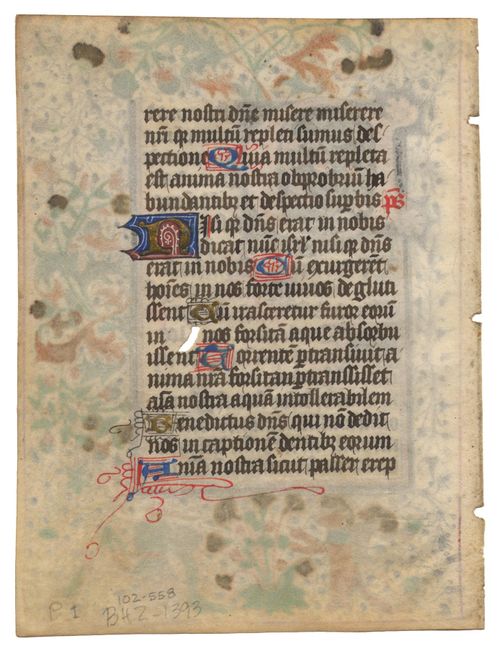 rere nostri dñe misere miserere
nr̄i q̄ multū repleti sumus des
pectione Quia multū repleta
est anima nostra obprobriū ha
bundantibꝫ et despectio supbis p̄s
Nisi q̄ dñs erat in nobis
dicat nūc isrl̄ nisi q̄ dñs
erat in nobis Cū exurgerēt
hoīes in nos forte vivos deglutis
sent Cū irasceretur furor eorū
in nos forsitā aque absorbu
issent Torrente ptransivit a
nima nr̄a forsitan ptranssisset
aīa nostra aquā intollerabilem
Benedictus dñs qui nō dedit
nos in captionē dentibꝫ eorum
Anīa nostra sicut passer erep
P 1
102-558
BHZ-1393